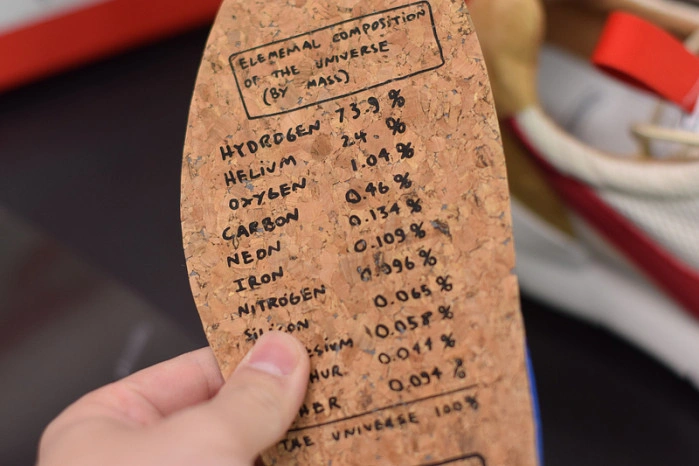 ELEMEMAL COMPOSITION
OF THE UNIVERSE
(BY MASS)
HYDROGEN 73.9 %
HELIUM 24 %
OXYGEN 1.04 %
CARBON 0.46 %
NEON 0.134 %
IRON 0.109 %
NITROGEN 0.096 %
SILICON 0.065 %
SIUM 0.058 %
HUR 0.044 %
HER 0.094 %
THE UNIVERSE 100%